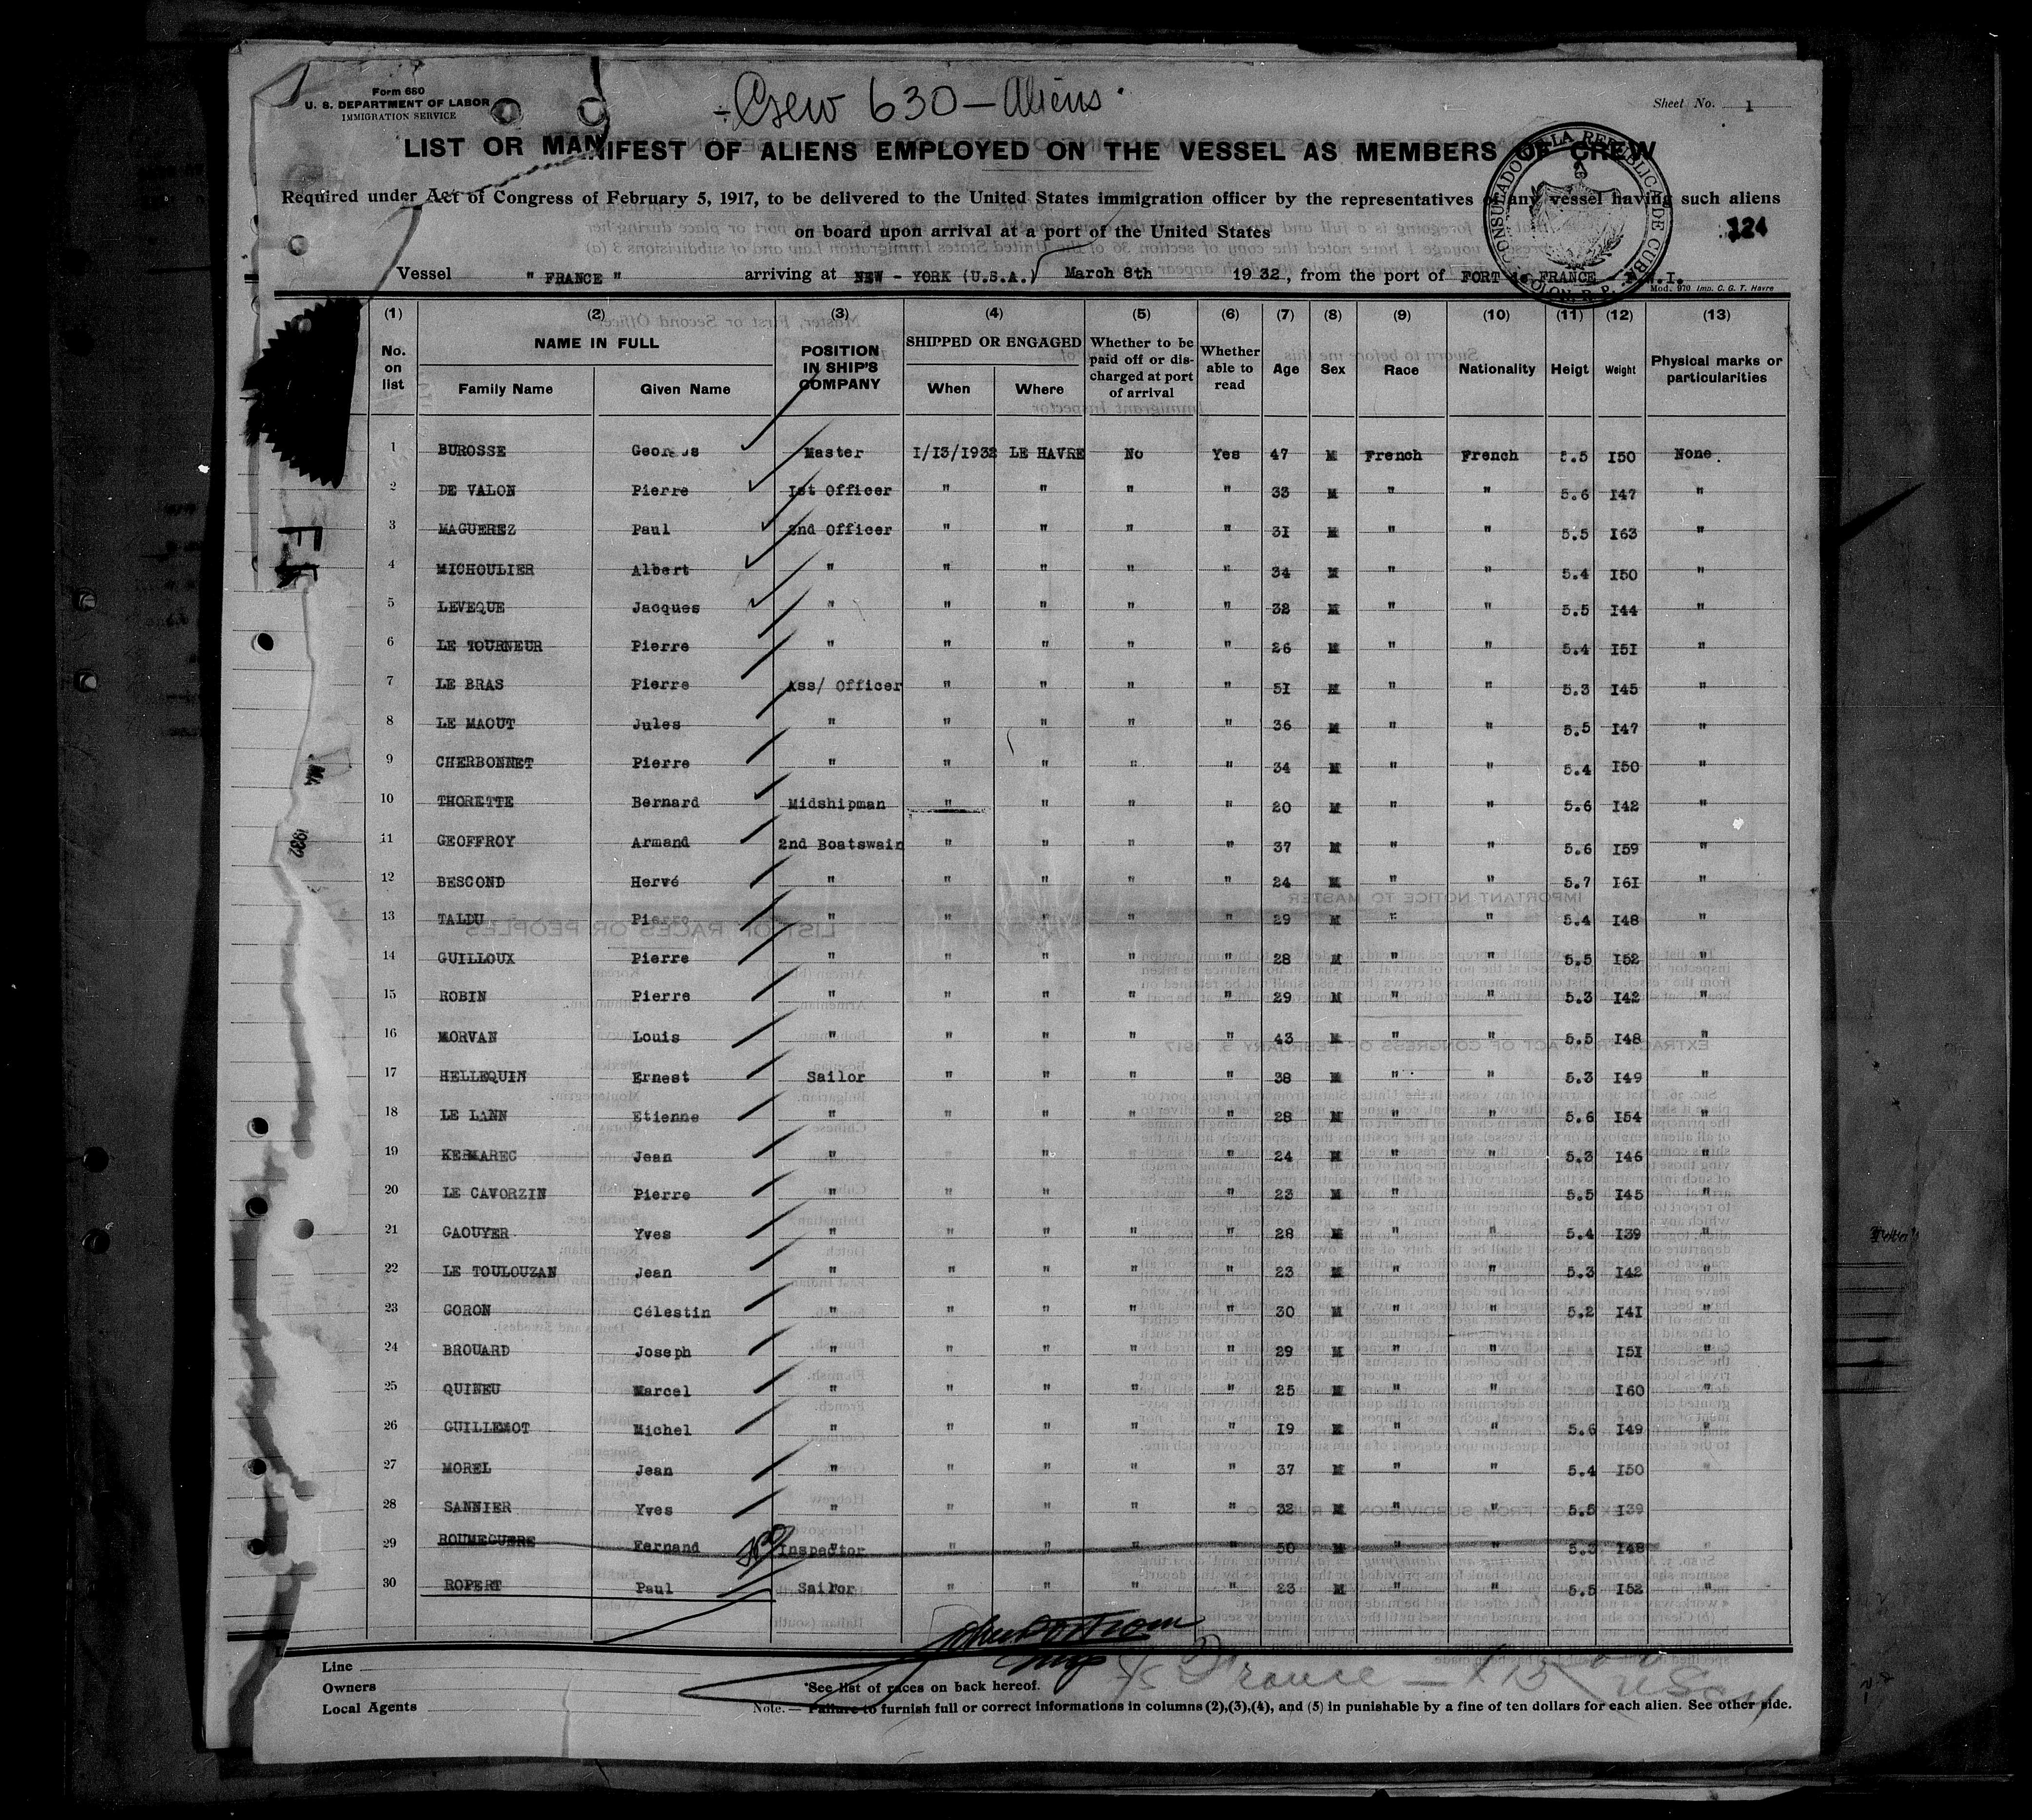 Form 680
U. S. DEPARTMENT OF LABOR
IMMIGRATION SERVICE
Crew 630 - Aliens
Sheet No. 1
LIST OR MANIFEST OF ALIENS EMPLOYED ON THE VESSEL AS MEMBERS OF CREW
Required under Act of Congress of February 5, 1917, to be delivered to the United States immigration officer by the representatives of any vessel having such aliens
on board upon arrival at a port of the United States
CONSULADO DE LA REPUBLICA DE CUBA COLON. R. P.
124
Vessel " FRANCE " arriving at NEW - YORK (U.S.A.) March 8th 1932, from the port of FORT de FRANCE W.I.
Mod. 970 Imp. C. G. T. Havre
(1) (2) (3) (4) (5) (6) (7) (8) (9) (10) (11) (12) (13)
No. on list NAME IN FULL Family Name Given Name POSITION IN SHIP'S COMPANY SHIPPED OR ENGAGED When Where Whether to be paid off or discharged at port of arrival Whether able to read Age Sex Race Nationality Heigt Weight Physical marks or particularities
1 BUROSSE Georges Master I/I3/1932 LE HAVRE No Yes 47 M French French 5.5 I50 None.
2 DE VALON Pierre Ist Officer " " " " 33 M " " 5.6 I47 "
3 MAGUEREZ Paul 2nd Officer " " " " 3I M " " 5.5 I63 "
4 MICHOULIER Albert " " " " " 34 M " " 5.4 I50 "
5 LEVEQUE Jacques " " " " " 32 M " " 5.5 I44 "
6 LE TOURNEUR Pierre " " " " " 26 M " " 5.4 I5I "
7 LE BRAS Pierre Ass/ Officer " " " " 5I M " " 5.3 I45 "
8 LE MAOUT Jules " " " " " 36 M " " 5.5 I47 "
9 CHERBONNET Pierre " " " " " 34 M " " 5.4 I50 "
10 THORETTE Bernard Midshipman " " " " 20 M " " 5.6 I42 "
11 GEOFFROY Armand 2nd Boatswain " " " " 37 M " " 5.6 I59 "
12 BESCOND Hervé " " " " " 24 M " " 5.7 I6I "
13 TALDU Pierre " " " " " 29 M " " 5.4 I48 "
14 GUILLOUX Pierre " " " " " 28 M " " 5.5 I52 "
15 ROBIN Pierre " " " " " 29 M " " 5.3 I42 "
16 MORVAN Louis " " " " " 43 M " " 5.5 I48 "
17 HELLEQUIN Ernest Sailor " " " " 38 M " " 5.3 I49 "
18 LE LANN Etienne " " " " " 28 M " " 5.6 I54 "
19 KERMAREC Jean " " " " " 24 M " " 5.3 I46 "
20 LE CAVORZIN Pierre " " " " " 23 M " " 5.5 I45 "
21 GAOUYER Yves " " " " " 28 M " " 5.4 I39 "
22 LE TOULOUZAN Jean " " " " " 23 M " " 5.3 I42 "
23 GORON Célestin " " " " " 30 M " " 5.2 I4I "
24 BROUARD Joseph " " " " " 29 M " " I5I "
25 QUINEU Marcel " " " " " 25 M " " I60 "
26 GUILLEMOT Michel " " " " " I9 M " " 5.6 I49 "
27 MOREL Jean " " " " " 37 M " " 5.4 I50 "
28 SANNIER Yves " " " " " 32 M " " 5.5 I39
29 ROUMEGUERE Fernand Inspector " " " " 50 M " " 5.3 I48 "
30 ROPERT Paul Sailor " " " " 23 M " " 5.5 I52 "
Line
Owners
Local Agents
*See list of races on back hereof.
Note. — Failure to furnish full or correct informations in columns (2),(3),(4), and (5) in punishable by a fine of ten dollars for each alien. See other side.